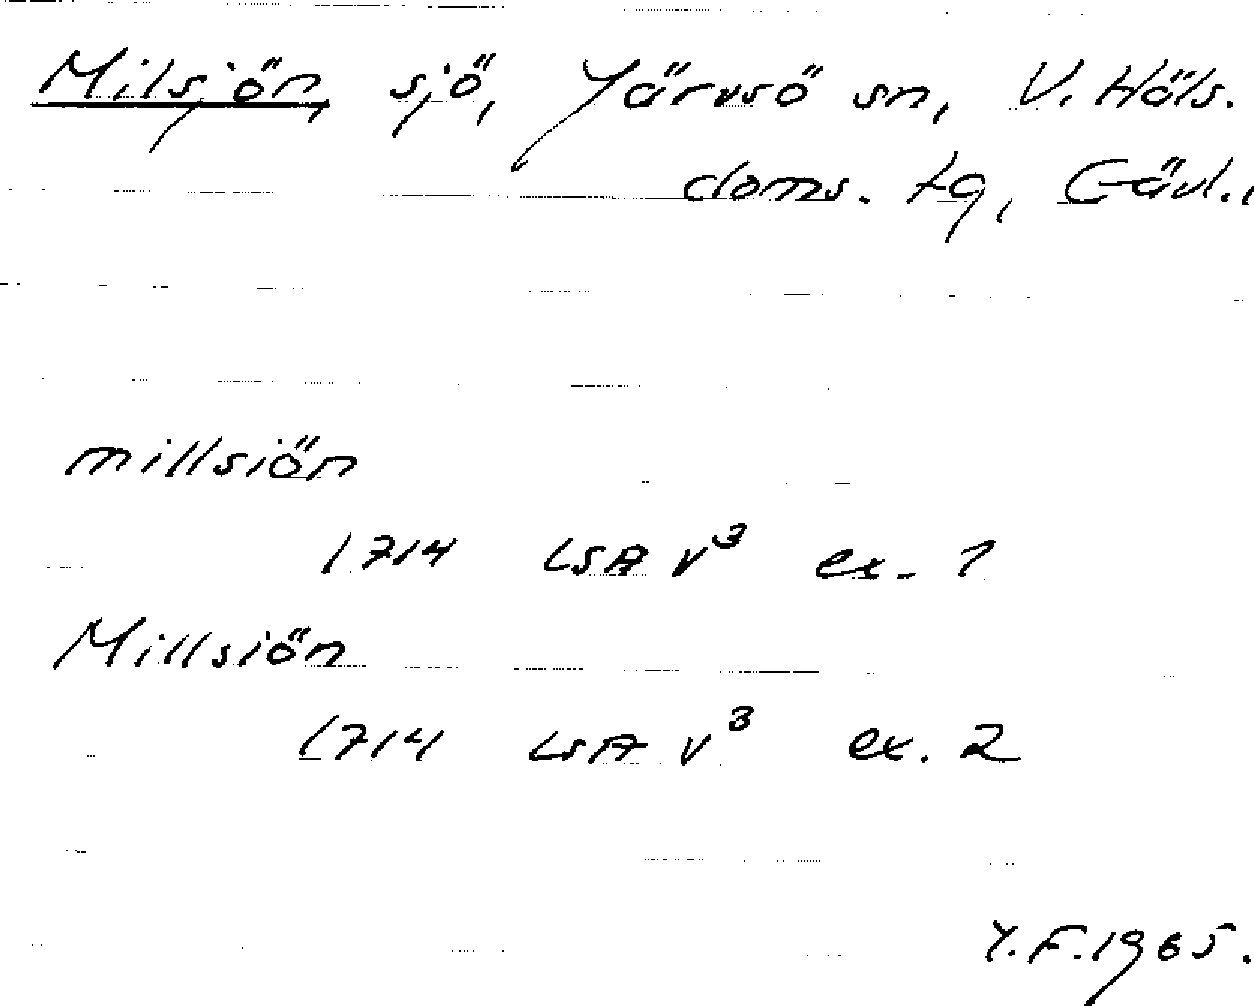 Milsjön, sjö, Järvsö sn, V. Häls.
doms. tg, Gävl.,
millsiön
1714 LSA V³ ex. 1
Millsiön
1714 LSA V³ ex. 2
Y.F. 1965.